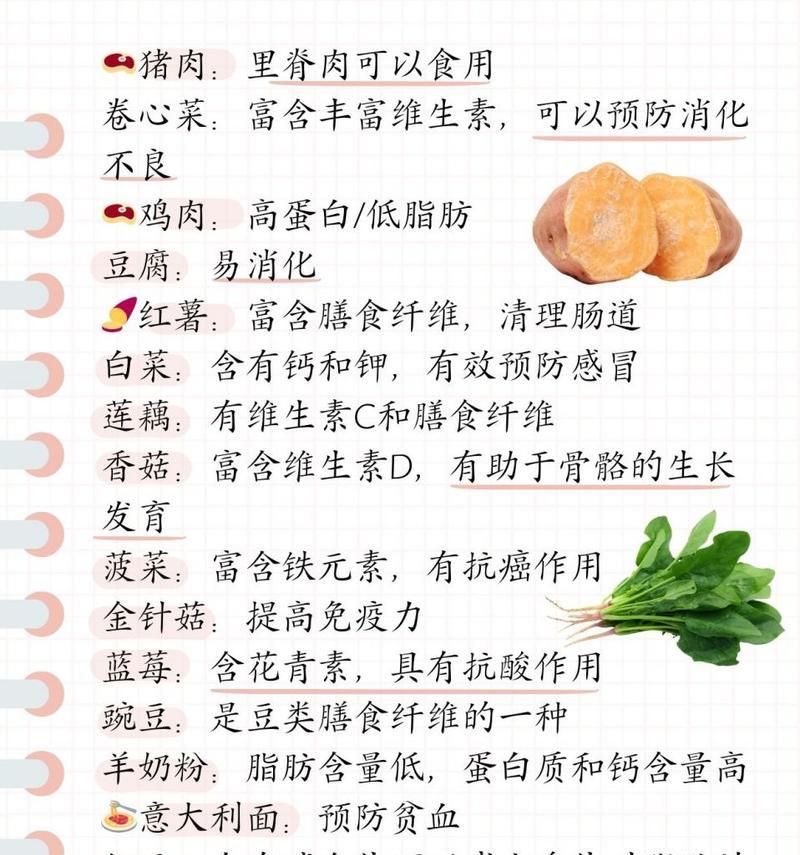 猪肉：里脊肉可以食用
卷心菜：富含丰富维生素，可以预防消化
不良
鸡肉：高蛋白/低脂肪
豆腐：易消化
红薯：富含膳食纤维，清理肠道
白菜：含有钙和钾，有效预防感冒
莲藕：有维生素C和膳食纤维
香菇：富含维生素D，有助于骨骼的生长
发育
菠菜：富含铁元素，有抗癌作用
金针菇：提高免疫力
蓝莓：含花青素，具有抗酸作用
豌豆：是豆类膳食纤维的一种
羊奶粉：脂肪含量低，蛋白质和钙含量高
意大利面：预防贫血